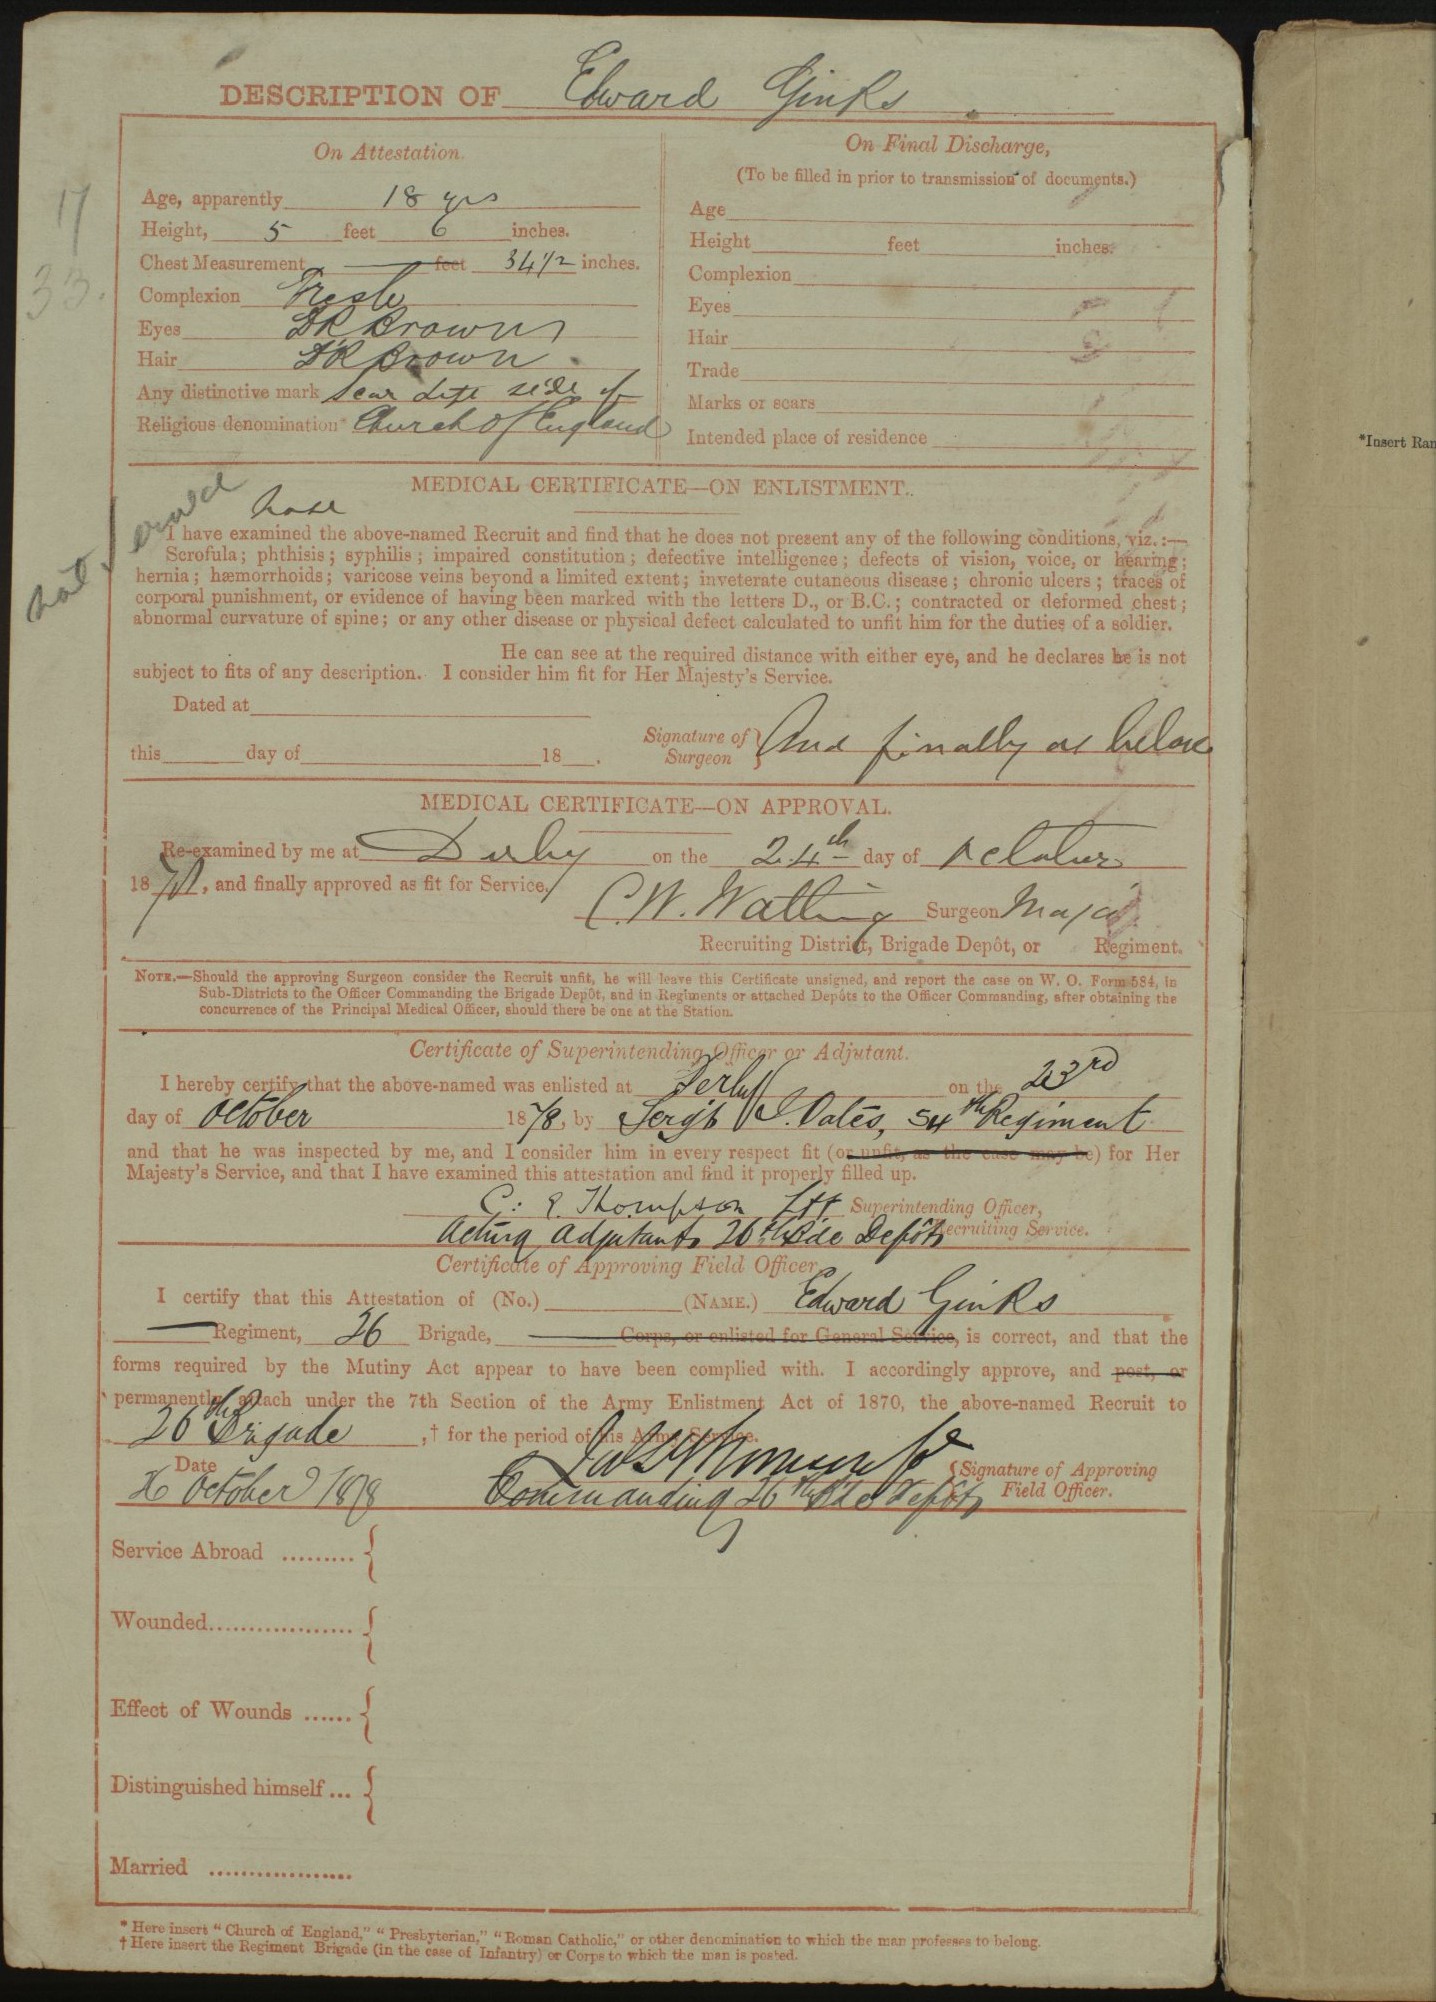 DESCRIPTION OF Edward Ginks
On Attestation.
Age, apparently 18 yrs
Height, 5 feet 6 inches.
Chest Measurement feet 34 1/2 inches.
Complexion Fresh
Eyes DK Brown
Hair DK Brown
Any distinctive mark Scar Left side of
Religious denomination* Church of England
On Final Discharge,
(To be filled in prior to transmission of documents.)
Age
Height feet inches.
Complexion
Eyes
Hair
Trade
Marks or scars
Intended place of residence
17
33.
nose
MEDICAL CERTIFICATE—ON ENLISTMENT.
I have examined the above-named Recruit and find that he does not present any of the following conditions, viz.:—
Scrofula; phthisis; syphilis; impaired constitution; defective intelligence; defects of vision, voice, or hearing;
hernia; hæmorrhoids; varicose veins beyond a limited extent; inveterate cutaneous disease; chronic ulcers; traces of
corporal punishment, or evidence of having been marked with the letters D., or B.C.; contracted or deformed chest;
abnormal curvature of spine; or any other disease or physical defect calculated to unfit him for the duties of a soldier.
He can see at the required distance with either eye, and he declares he is not
subject to fits of any description. I consider him fit for Her Majesty's Service.
Dated at
this day of 18 .
Signature of Surgeon } And finally as below
MEDICAL CERTIFICATE—ON APPROVAL.
Re-examined by me at Derby on the 24th day of October
1878, and finally approved as fit for Service,
C.W. Watling Surgeon Major
Recruiting District, Brigade Depôt, or Regiment.
NOTE.—Should the approving Surgeon consider the Recruit unfit, he will leave this Certificate unsigned, and report the case on W. O. Form 584, in
Sub-Districts to the Officer Commanding the Brigade Depôt, and in Regiments or attached Depôts to the Officer Commanding, after obtaining the
concurrence of the Principal Medical Officer, should there be one at the Station.
Certificate of Superintending Officer or Adjutant.
I hereby certify that the above-named was enlisted at Derby on the 23rd
day of October 1878, by Sergt J. Oates, 54th Regiment
and that he was inspected by me, and I consider him in every respect fit (or unfit, as the case may be) for Her
Majesty's Service, and that I have examined this attestation and find it properly filled up.
C. E. Thompson Ltt Superintending Officer,
Acting Adjutant 26th Bde Depôt Recruiting Service.
Certificate of Approving Field Officer
I certify that this Attestation of (No.) (NAME.) Edward Ginks
Regiment, 26 Brigade, Corps, or enlisted for General Service, is correct, and that the
forms required by the Mutiny Act appear to have been complied with. I accordingly approve, and post, or
permanently attach under the 7th Section of the Army Enlistment Act of 1870, the above-named Recruit to
26th Brigade ,† for the period of his Army Service.
Date
26 October 1878
Commanding 26th Bde Depôt
{Signature of Approving
Field Officer.
Service Abroad ......... {
Wounded.................. {
Effect of Wounds ...... {
Distinguished himself ... {
Married ..................
* Here insert "Church of England," "Presbyterian," "Roman Catholic," or other denomination to which the man professes to belong.
† Here insert the Regiment Brigade (in the case of Infantry) or Corps to which the man is posted.
*Insert Ran